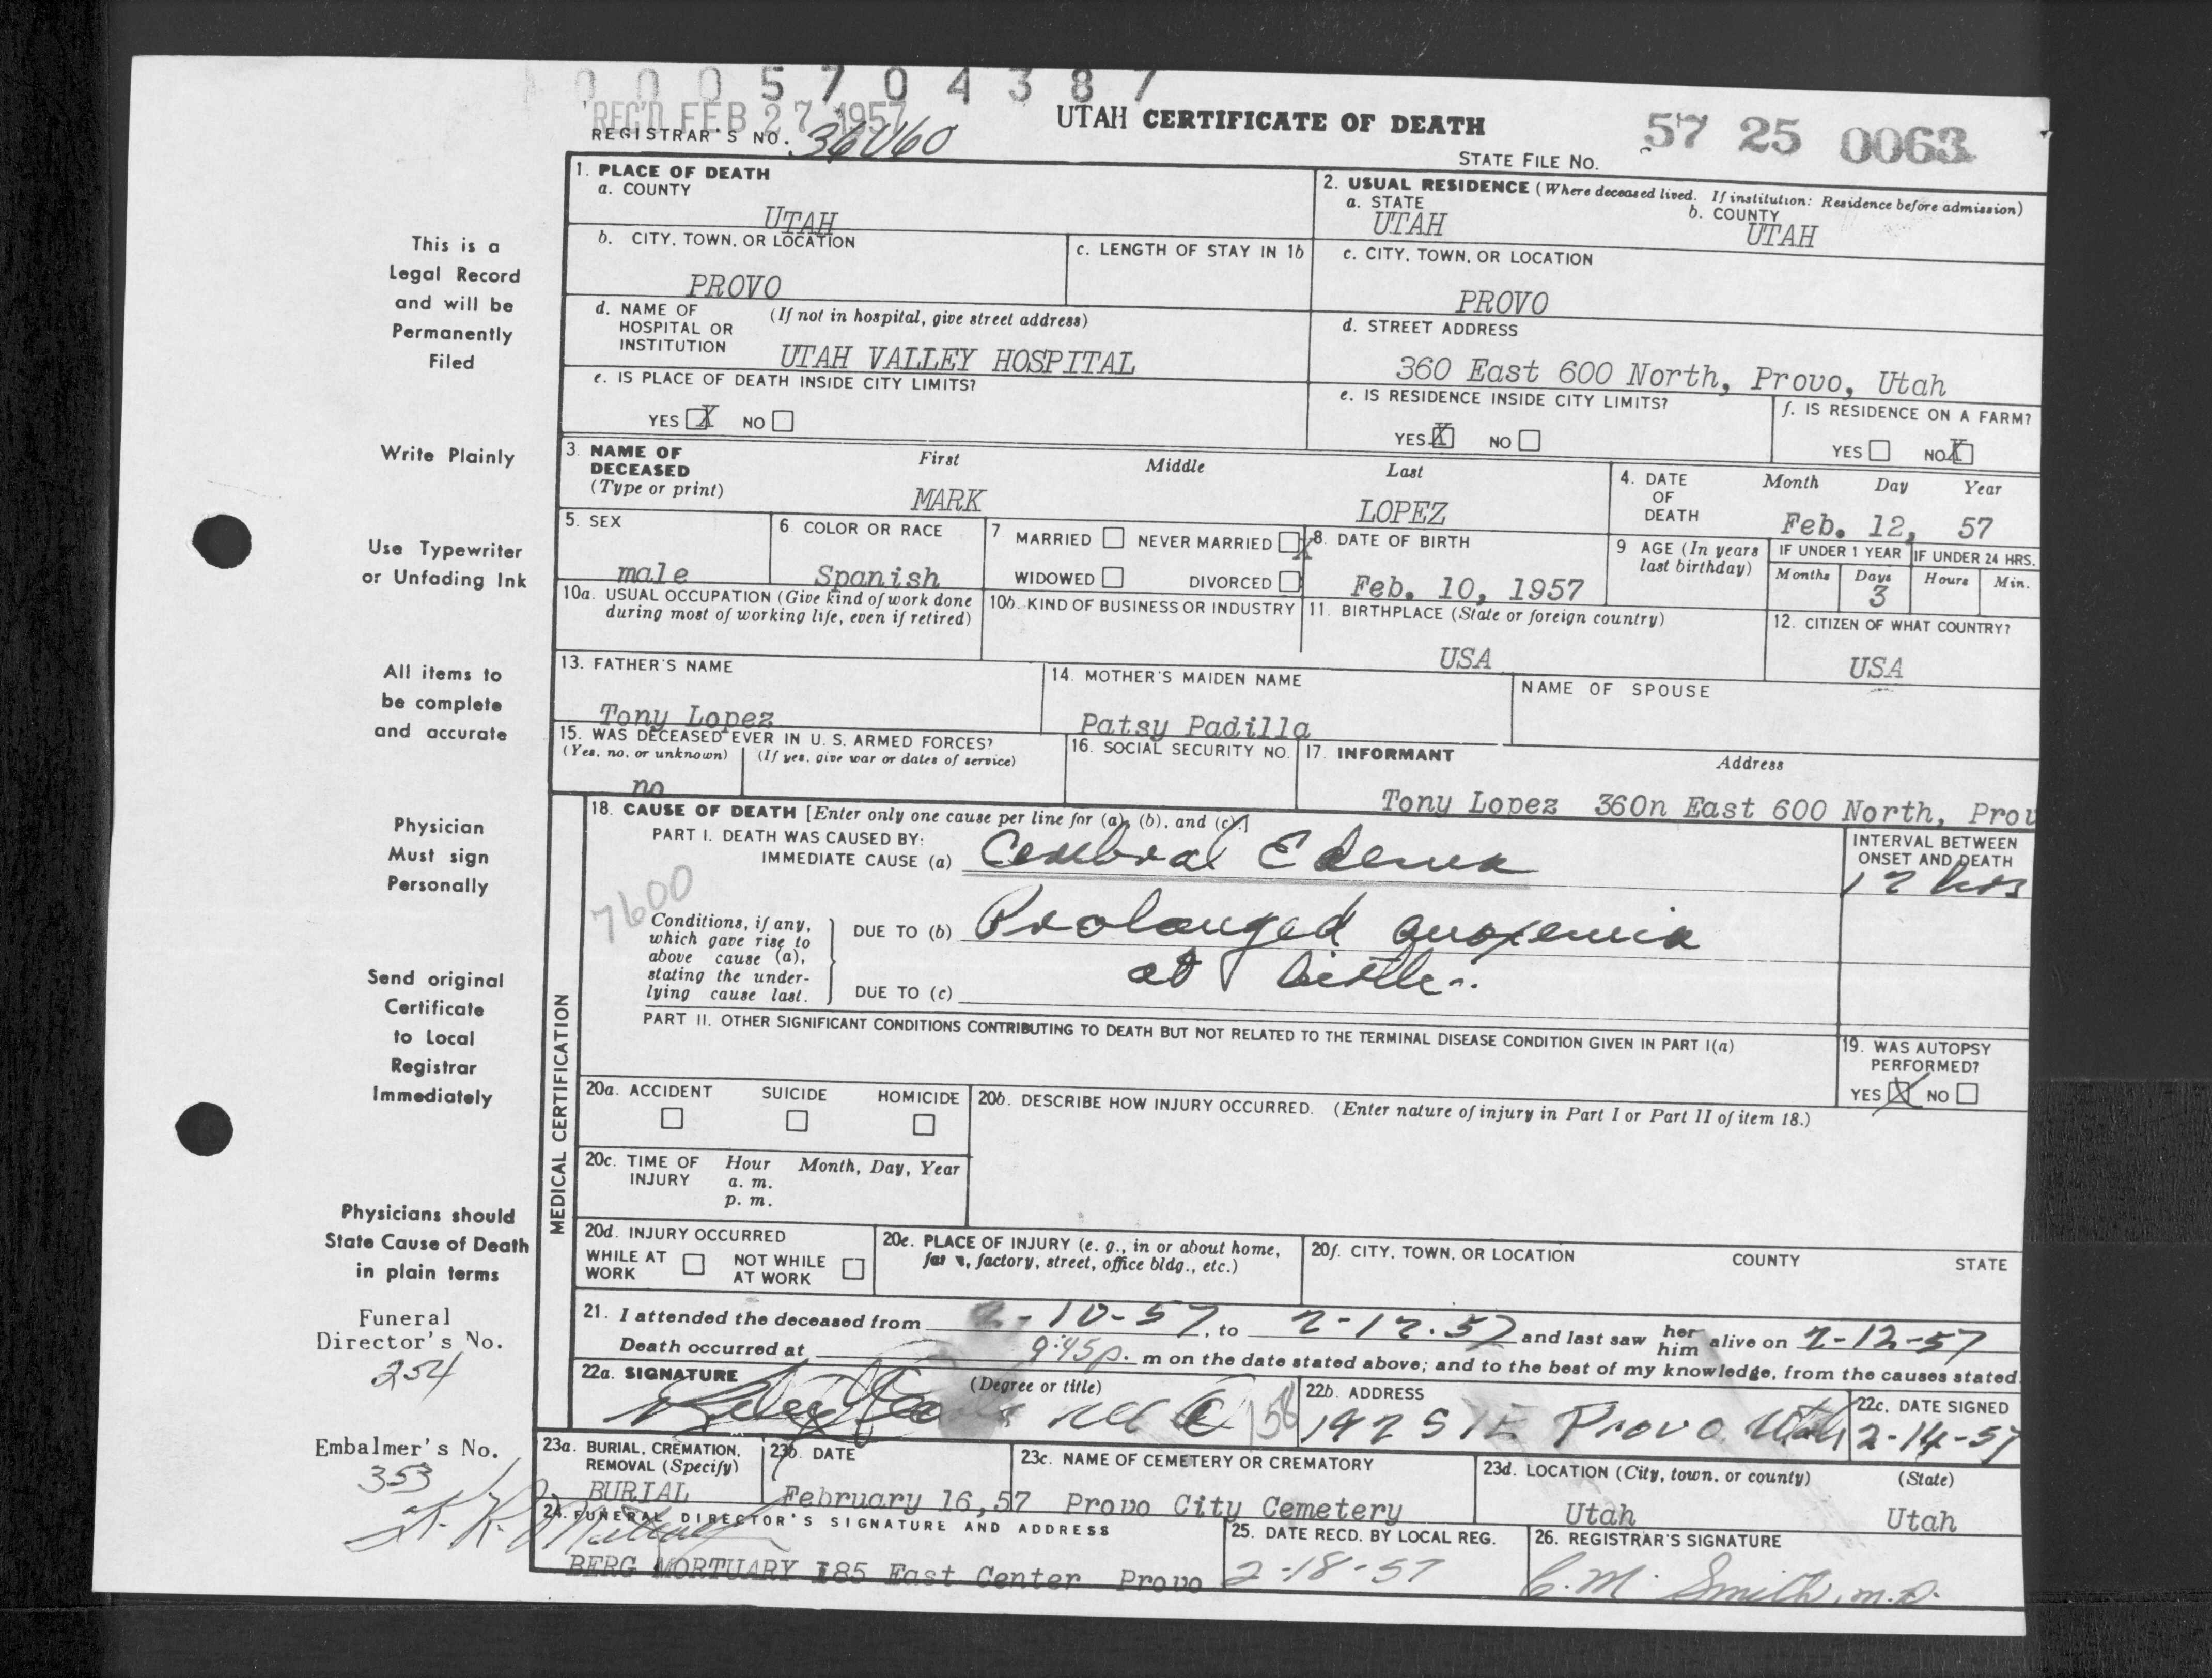 0005704387
REC'D FEB 27 1957
REGISTRAR'S NO. 36060
UTAH CERTIFICATE OF DEATH
STATE FILE NO. 57 25 0063
This is a
Legal Record
and will be
Permanently
Filed
Write Plainly
Use Typewriter
or Unfading Ink
All items to
be complete
and accurate
Physician
Must sign
Personally
Send original
Certificate
to Local
Registrar
Immediately
Physicians should
State Cause of Death
in plain terms
Funeral
Director's No.
254
Embalmer's No.
353
1. PLACE OF DEATH
a. COUNTY
UTAH
2. USUAL RESIDENCE (Where deceased lived. If institution: Residence before admission)
a. STATE
UTAH
b. COUNTY
UTAH
b. CITY, TOWN, OR LOCATION
PROVO
c. LENGTH OF STAY IN 1b
c. CITY, TOWN, OR LOCATION
PROVO
d. NAME OF (If not in hospital, give street address)
HOSPITAL OR
INSTITUTION UTAH VALLEY HOSPITAL
d. STREET ADDRESS
360 East 600 North, Provo, Utah
e. IS PLACE OF DEATH INSIDE CITY LIMITS?
YES X NO
e. IS RESIDENCE INSIDE CITY LIMITS?
YES X NO
f. IS RESIDENCE ON A FARM?
YES NO X
3. NAME OF DECEASED (Type or print)
First Middle Last
MARK LOPEZ
4. DATE OF DEATH
Month Day Year
Feb. 12, 57
5. SEX
male
6. COLOR OR RACE
Spanish
7 MARRIED NEVER MARRIED X
WIDOWED DIVORCED
8. DATE OF BIRTH
Feb. 10, 1957
9 AGE (In years last birthday)
IF UNDER 1 YEAR IF UNDER 24 HRS.
Months Days Hours Min.
3
10a. USUAL OCCUPATION (Give kind of work done
during most of working life, even if retired)
10b. KIND OF BUSINESS OR INDUSTRY
11. BIRTHPLACE (State or foreign country)
USA
12. CITIZEN OF WHAT COUNTRY?
USA
13. FATHER'S NAME
Tony Lopez
14. MOTHER'S MAIDEN NAME
Patsy Padilla
NAME OF SPOUSE
15. WAS DECEASED EVER IN U. S. ARMED FORCES?
(Yes, no, or unknown) (If yes, give war or dates of service)
no
16. SOCIAL SECURITY NO.
17. INFORMANT Address
Tony Lopez 360n East 600 North, Prov
MEDICAL CERTIFICATION
18. CAUSE OF DEATH [Enter only one cause per line for (a), (b), and (c).]
PART I. DEATH WAS CAUSED BY:
IMMEDIATE CAUSE (a) Cerebral Edema
INTERVAL BETWEEN
ONSET AND DEATH
12 hrs
7600
Conditions, if any,
which gave rise to
above cause (a),
stating the under-
lying cause last.
DUE TO (b) Prolonged anoxemia
at birth.
DUE TO (c)
PART II. OTHER SIGNIFICANT CONDITIONS CONTRIBUTING TO DEATH BUT NOT RELATED TO THE TERMINAL DISEASE CONDITION GIVEN IN PART I(a)
19. WAS AUTOPSY
PERFORMED?
YES X NO
20a. ACCIDENT SUICIDE HOMICIDE
20b. DESCRIBE HOW INJURY OCCURRED. (Enter nature of injury in Part I or Part II of item 18.)
20c. TIME OF INJURY
Hour Month, Day, Year
a. m.
p. m.
20d. INJURY OCCURRED
WHILE AT WORK NOT WHILE AT WORK
20e. PLACE OF INJURY (e. g., in or about home,
farm, factory, street, office bldg., etc.)
20f. CITY, TOWN, OR LOCATION COUNTY STATE
21. I attended the deceased from 2-10-57, to 2-12-57 and last saw her him alive on 2-12-57
Death occurred at 9:45p. m on the date stated above; and to the best of my knowledge, from the causes stated.
22a. SIGNATURE (Degree or title)
22b. ADDRESS
192 S 1 E Provo Utah
22c. DATE SIGNED
2-14-57
23a. BURIAL, CREMATION,
REMOVAL (Specify)
BURIAL
23b. DATE
February 16,57
23c. NAME OF CEMETERY OR CREMATORY
Provo City Cemetery
23d. LOCATION (City, town, or county) (State)
Utah Utah
24. FUNERAL DIRECTOR'S SIGNATURE AND ADDRESS
BERG MORTUARY 185 East Center Provo
25. DATE RECD. BY LOCAL REG.
2-18-57
26. REGISTRAR'S SIGNATURE
C. M. Smith, m.D.